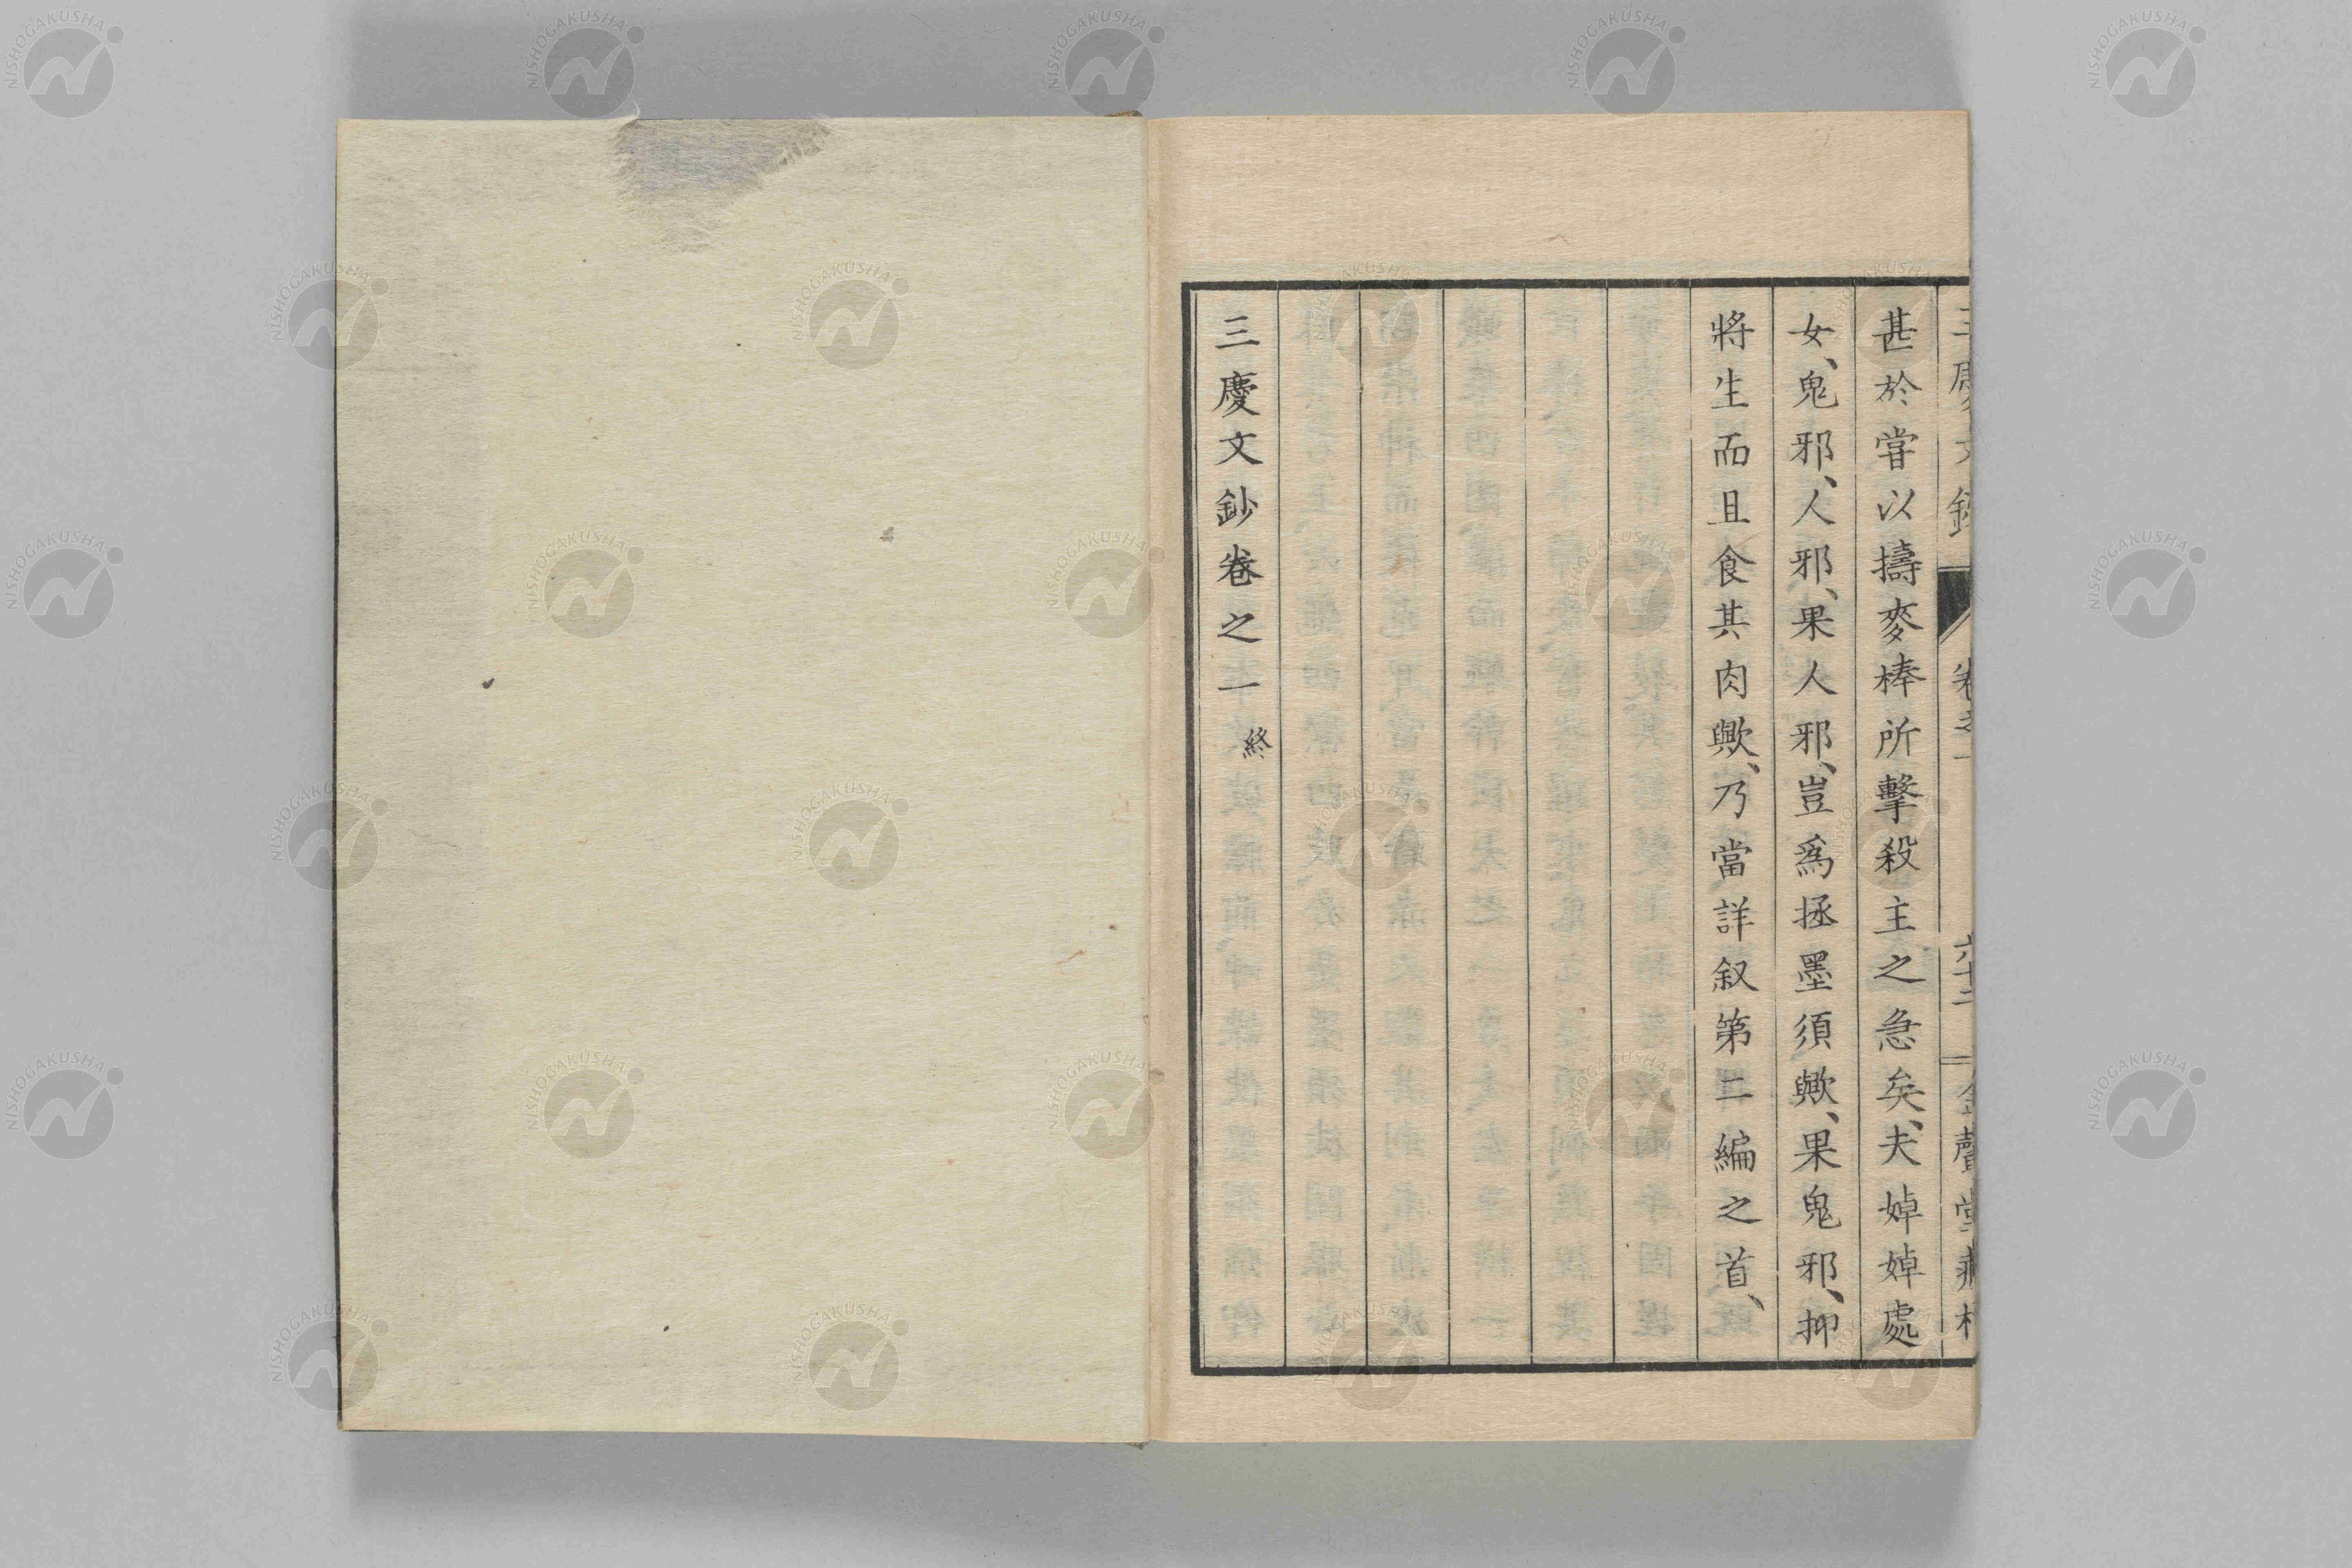 三慶文鈔 卷之一 六十二 金聲堂藏
甚於嘗以擣麥棒所擊殺主之急矣、夫婥婥處
女、鬼邪、人邪、果人邪、豈爲拯墨須歟、果鬼邪、抑
將生而且食其肉歟、乃當詳叙第二編之首、
三慶文鈔卷之一 終
NISHOGAKUSHA